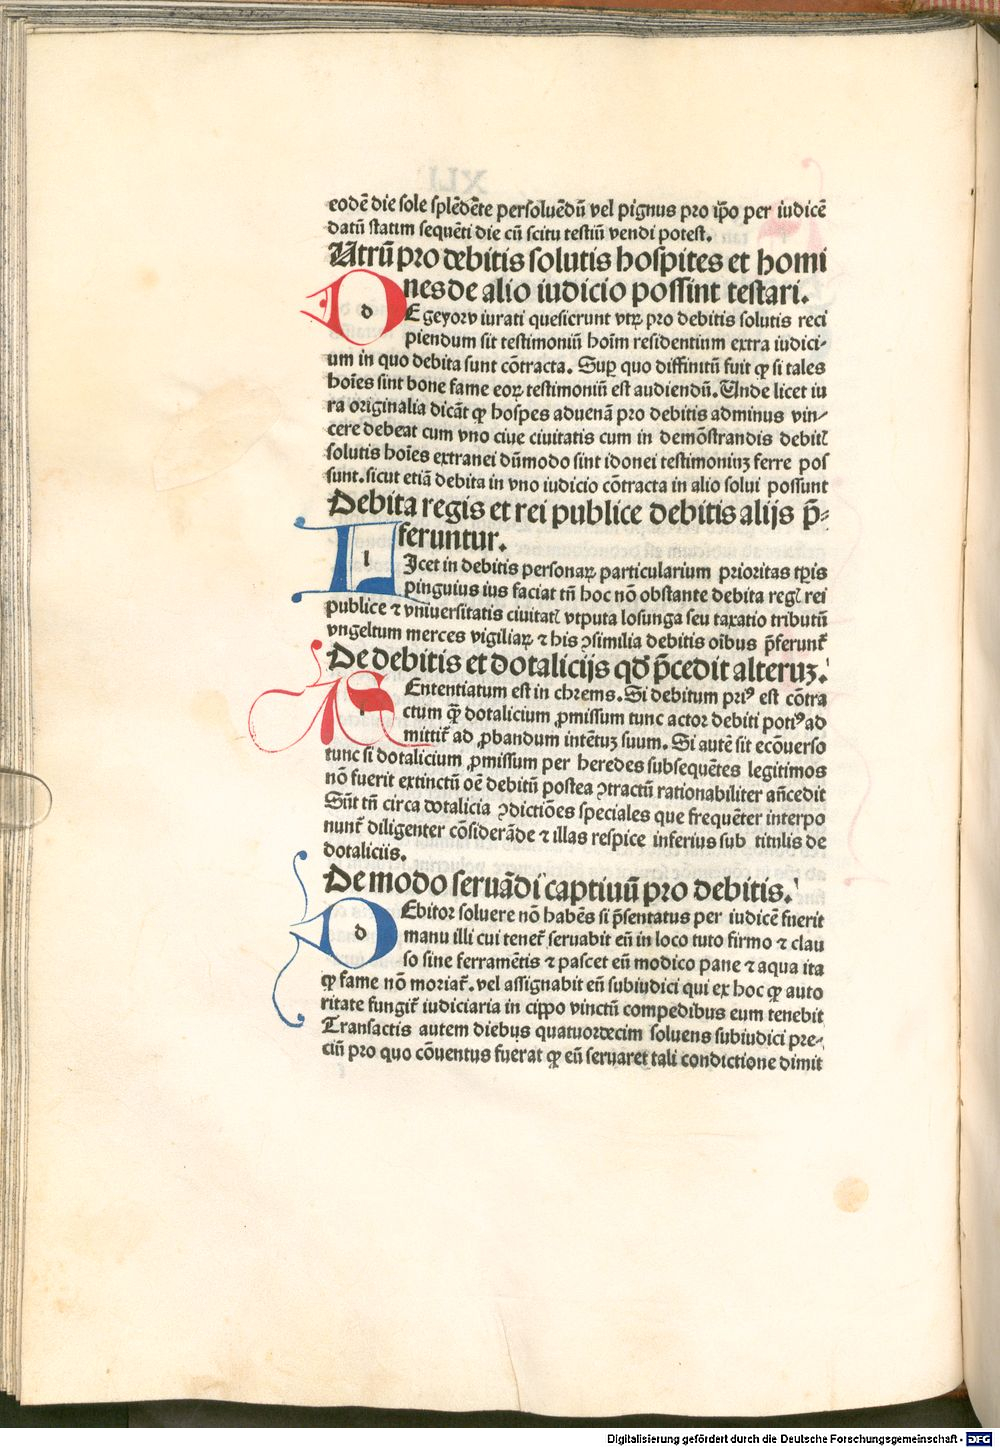 eodē die sole splēdēte persoluēdū vel pignus pro ip̄o per iudicē
datū statim sequēti die cū scitu testiū vendi potest.
Utrū pro debitis solutis hospites et homi
nes de alio iudicio possint testari.
DE geyorv iurati quesierunt vtꝝ pro debitis solutis reci
piendum sit testimoniū hoīm residentium extra iudici-
um in quo debita sunt cōtracta. Suꝑ quo diffinitū fuit ꝙ si tales
hoīes sint bone fame eoꝝ testimoniū est audiendū. Unde licet iu
ra originalia dicāt ꝙ hospes aduenā pro debitis adminus vin-
cere debeat cum vno ciue ciuitatis cum in demōstrandis debitꝭ
solutis hoīes extranei dūmodo sint idonei testimoniuꝫ ferre pos
sunt. sicut etiā debita in vno iudicio cōtracta in alio solui possunt
Debita regis et rei publice debitis alijs p̄-
feruntur.
LIcet in debitis personaꝝ particularium prioritas tp̄is
pinguius ius faciat tn̄ hoc nō obstante debita regꝭ rei
publice ⁊ vniuersitatis ciuitatꝭ vtputa losunga seu taxatio tributū
vngeltum merces vigiliaꝝ ⁊ his ꝯsimilia debitis oībus p̄ferunt᷑
De debitis et dotalicijs qd̄ p̄cedit alteruꝫ.
SEntentiatum est in chrems. Si debitum priꝰ est cōtra
ctum ꝙ̄ dotalicium ꝓmissum tunc actor debiti potiꝰ ad
mittit᷑ ad ꝓbandum intētuꝫ suum. Si autē sit ecōuerso
tunc si dotalicium ꝓmissum per heredes subsequētes legitimos
nō fuerit extinctū oē debitū postea ꝯtractū rationabiliter an̄cedit
Sūt tn̄ circa dotalicia ꝯdictiōes speciales que frequēter interpo
nunt᷑ diligenter cōsiderāde ⁊ illas respice inferius sub titulis de
dotaliciis.
De modo seruādi captiuū pro debitis.
DEbitor soluere nō habēs si p̄sentatus per iudicē fuerit
manu illi cui tenet᷑ seruabit eū in loco tuto firmo ⁊ clau
so sine ferramētis ⁊ pascet eū modico pane ⁊ aqua ita
ꝙ fame nō moriat᷑. vel assignabit eū subiudici qui ex hoc ꝙ auto
ritate fungit᷑ iudiciaria in cippo vinctū compedibus eum tenebit
Transactis autem diebus quatuordecim soluens subiudici pre-
ciū pro quo cōuentus fuerat ꝙ eū seruaret tali condictione dimit
Digitalisierung gefördert durch die Deutsche Forschungsgemeinschaft - DFG